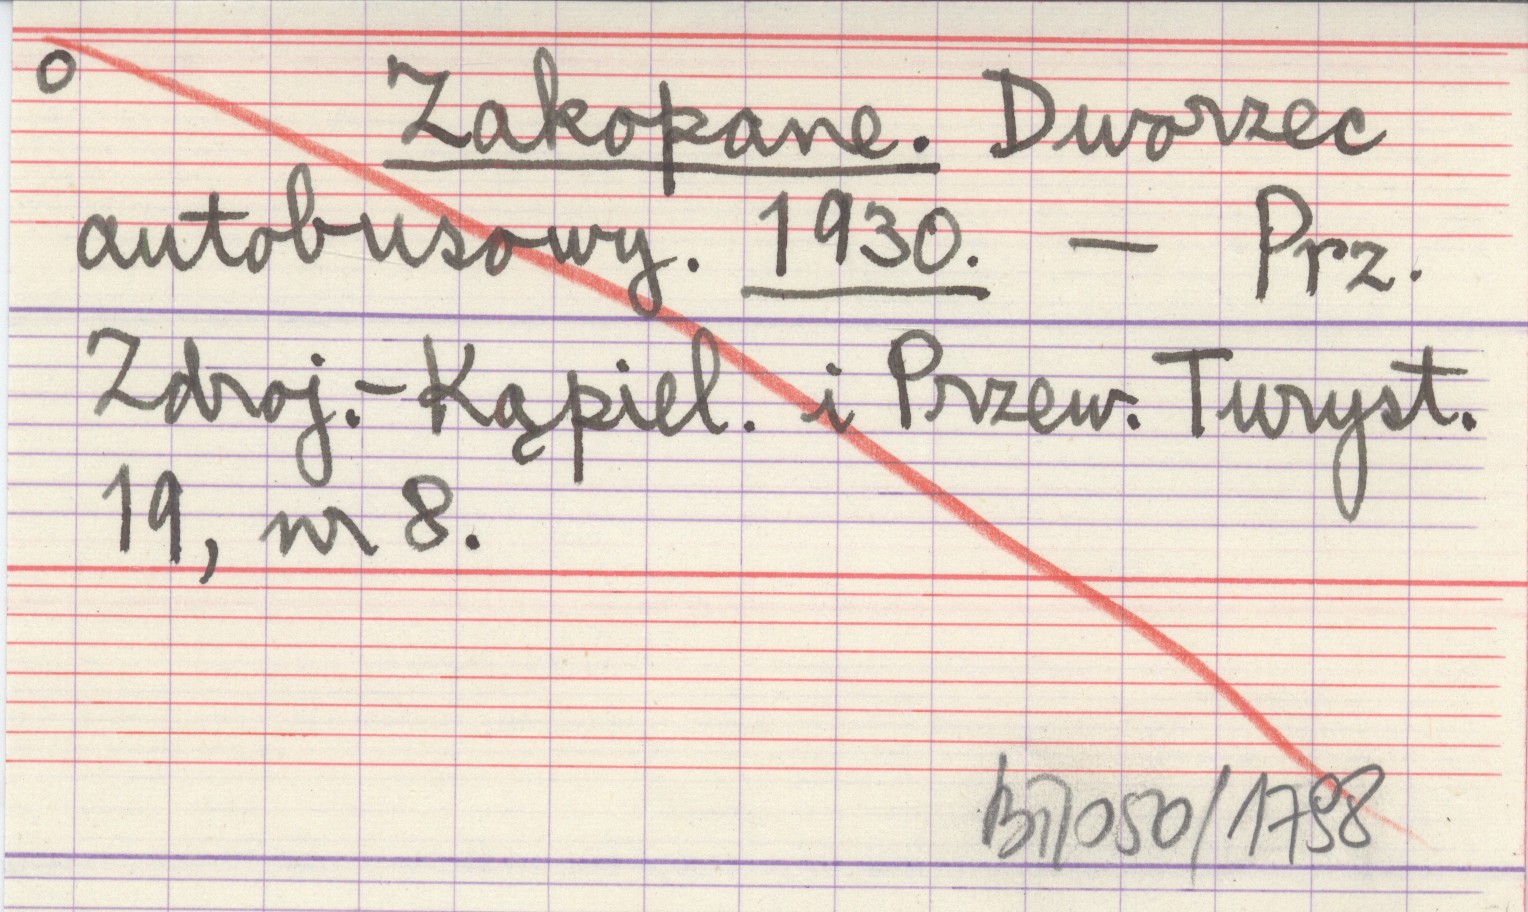 o Zakopane. Dworzec
autobusowy. 1930. — Prz.
Zdroj.-Kąpiel. i Przew. Turyst.
19, nr 8.